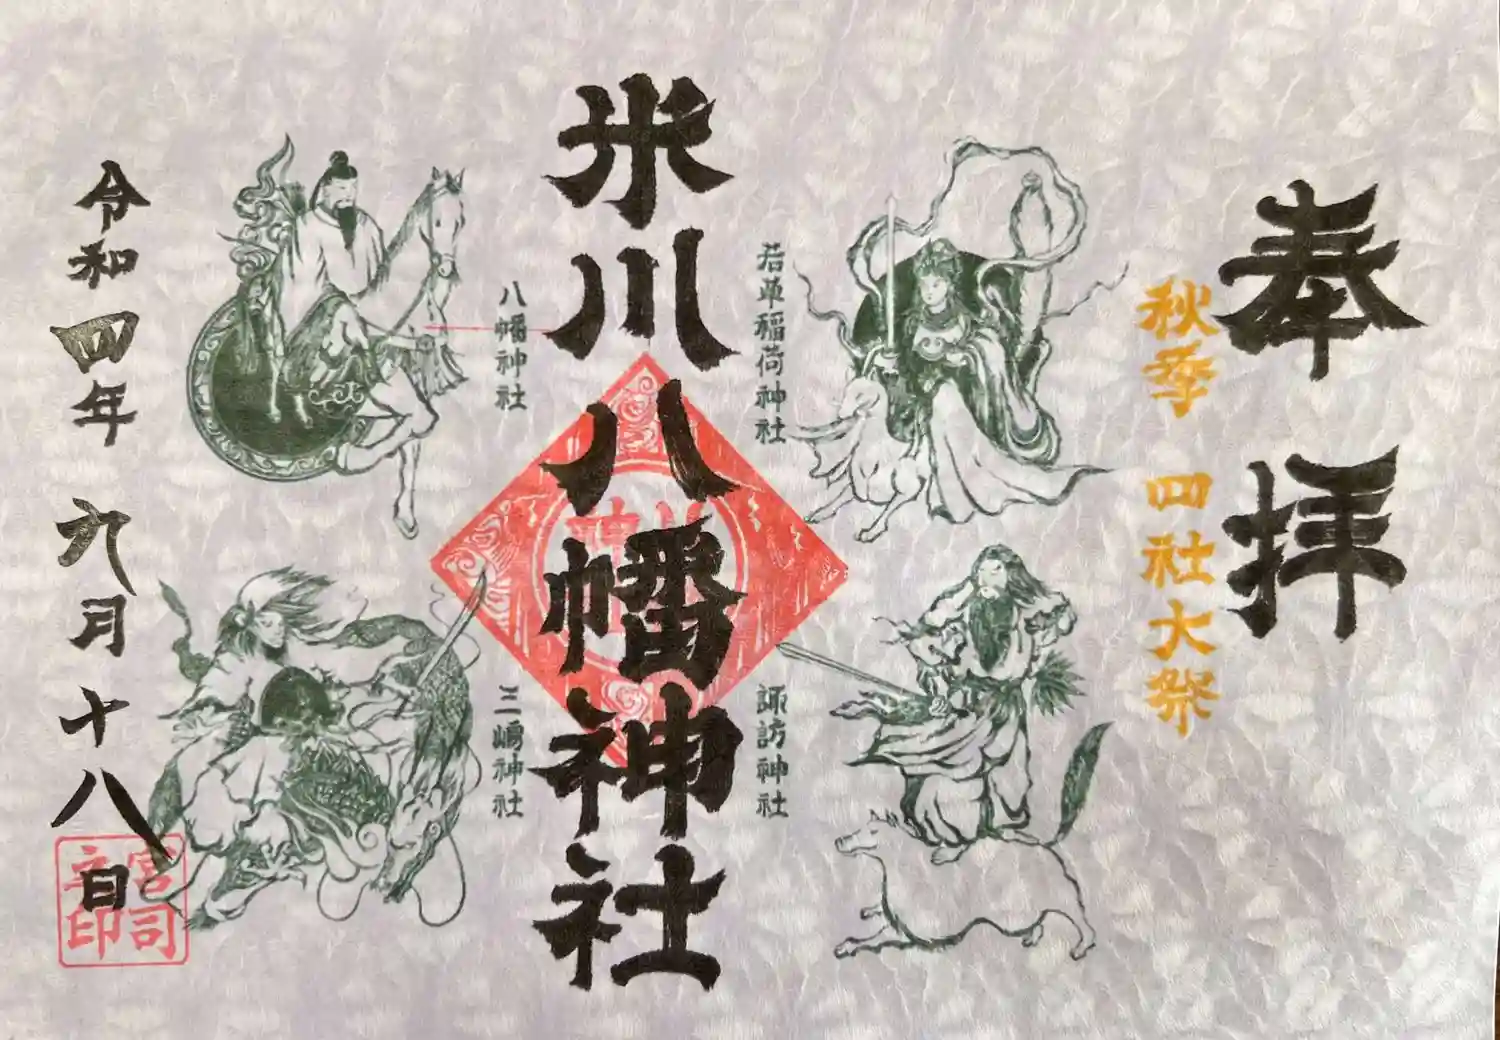 奉拝
秋季 四社大祭
若草稲荷神社
諏訪神社
米川八幡神社
八幡神社
三嶋神社
令和四年 九月十八日
宮司
之印